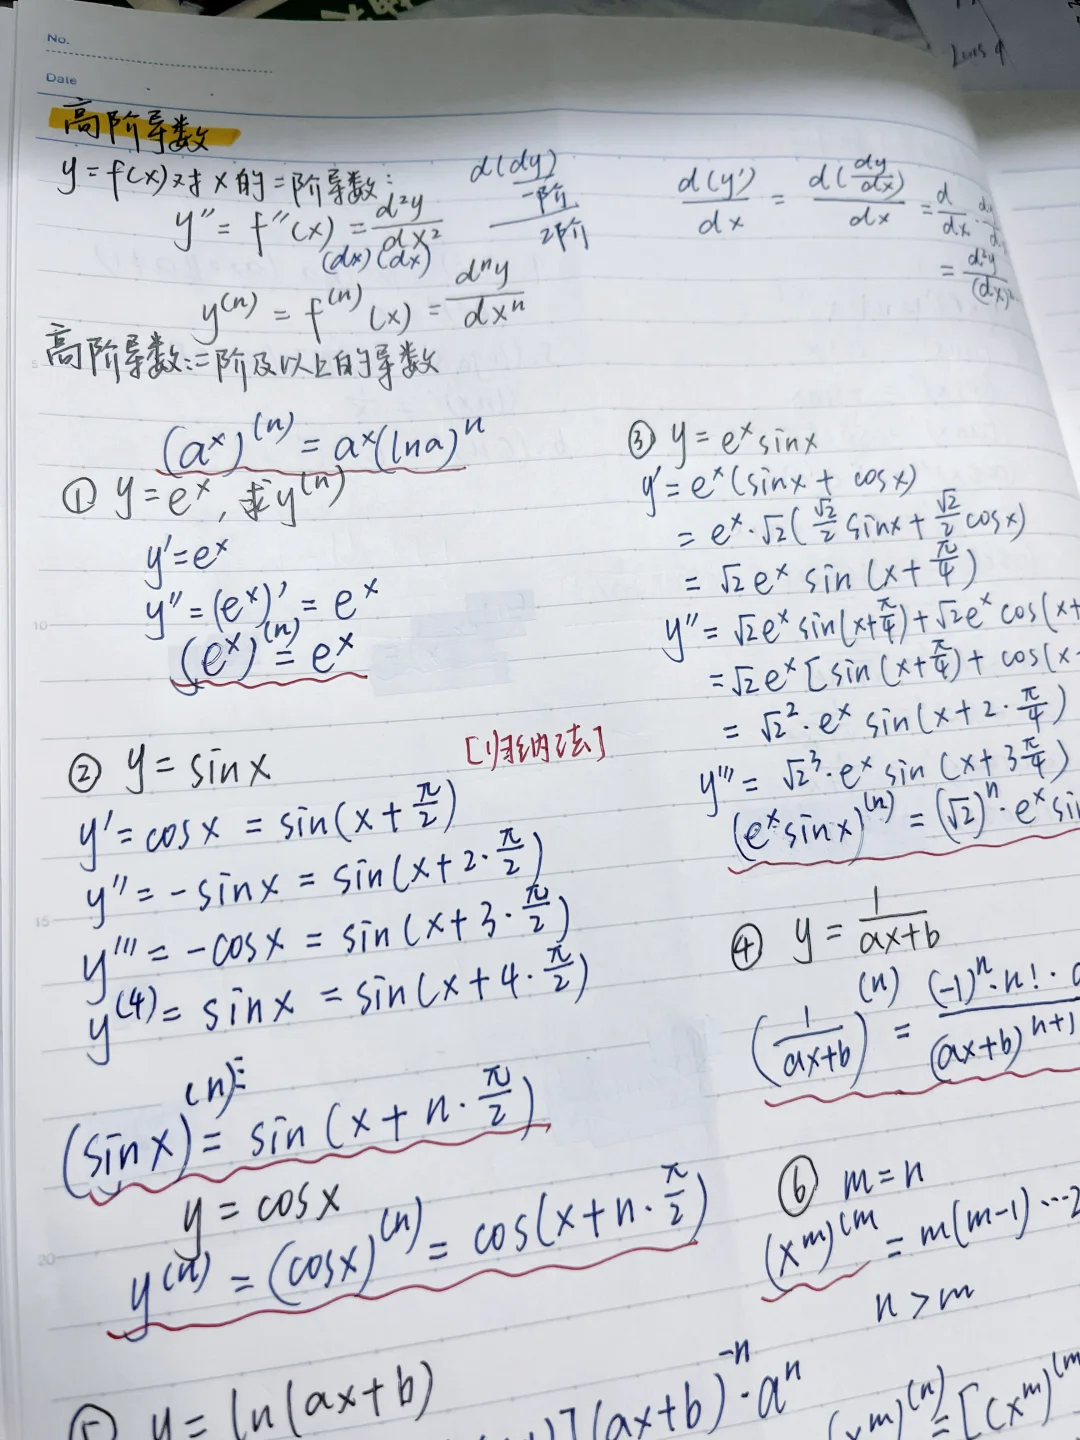 No.
Date
高阶导数
y=f(x)对x的二阶导数:
y''=f''(x)=d²y/dx²
(dx)(dx)
d(dy)/一阶
2阶
d(y')/dx = d(dy/dx)/dx = d/dx ·
= d²y/(dx)²
y⁽ⁿ⁾=f⁽ⁿ⁾(x)=dⁿy/dxⁿ
高阶导数:二阶及以上的导数
(aˣ)⁽ⁿ⁾=aˣ(lna)ⁿ
① y=eˣ,求y⁽ⁿ⁾
y'=eˣ
y''=(eˣ)'=eˣ
(eˣ)⁽ⁿ⁾=eˣ
② y=sinx
[归纳法]
y'=cosx=sin(x+π/2)
y''=-sinx=sin(x+2·π/2)
y'''=-cosx=sin(x+3·π/2)
y⁽⁴⁾=sinx=sin(x+4·π/2)
(sinx)⁽ⁿ⁾=sin(x+n·π/2)
y=cosx
y⁽ⁿ⁾=(cosx)⁽ⁿ⁾=cos(x+n·π/2)
③ y=eˣsinx
y'=eˣ(sinx+cosx)
=eˣ·√2(√2/2 sinx+√2/2 cosx)
=√2eˣ sin(x+π/4)
y''=√2eˣsin(x+π/4)+√2eˣcos(x+
=√2eˣ[sin(x+π/4)+cos(x
=√2²·eˣ sin(x+2·π/4)
y'''=√2³·eˣ sin(x+3π/4)
(eˣsinx)⁽ⁿ⁾=(√2)ⁿ·eˣsin
④ y=1/(ax+b)
(1/(ax+b))⁽ⁿ⁾=(-1)ⁿ·n!·/(ax+b)ⁿ⁺¹
⑥ m=n
(xᵐ)⁽ᵐ=m(m-1)…2
n>m
⑤ y=ln(ax+b)
](ax+b)⁻ⁿ·aⁿ
(xᵐ)⁽ⁿ⁾=[(xᵐ)⁽ᵐ